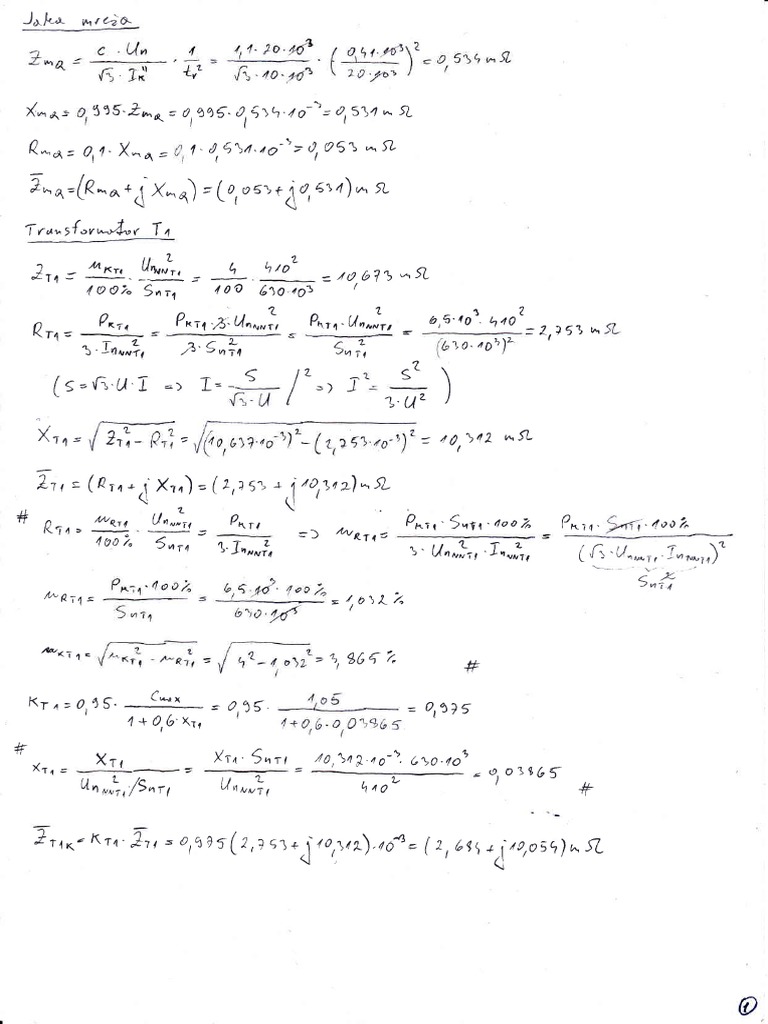 Jaka mreža
Z_mQ = (c · Un)/(√3 · Ik") · 1/tr² = (1,1·20·10³)/(√3·10·10³) · (0,41·10³/20·10³)² = 0,534 mΩ
X_mQ = 0,995·Z_mQ = 0,995·0,534·10⁻³ = 0,531 mΩ
R_mQ = 0,1·X_mQ = 0,1·0,531·10⁻³ = 0,053 mΩ
Z̄_mQ = (R_mQ + j X_mQ) = (0,053 + j0,531) mΩ
Transformator T1
Z_T1 = u_KT1/100% · U_nNNT1²/S_nT1 = 4/100 · 410²/630·10³ = 10,673 mΩ
R_T1 = P_KT1/(3·I_nNNT1²) = (P_KT1·3·U_nNNT1²)/(3·S_nT1²) = (P_KT1·U_nNNT1²)/S_nT1² = (6,5·10³·410²)/(630·10³)² = 2,753 mΩ
(S = √3·U·I => I = S/(√3·U) /² => I² = S²/(3·U²))
X_T1 = √(Z_T1² − R_T1²) = √((10,637·10⁻³)² − (2,753·10⁻³)²) = 10,312 mΩ
Z̄_T1 = (R_T1 + j X_T1) = (2,753 + j10,312) mΩ
# R_T1 = u_RT1/100% · U_nNNT1²/S_nT1 = P_KT1/(3·I_nNNT1²) => u_RT1 = (P_KT1·S_nT1·100%)/(3·U_nNNT1²·I_nNNT1²) = (P_KT1·S_nT1·100%)/(√3·U_nNNT1·I_nNNT1)²
S_nT1²
u_RT1 = (P_KT1·100%)/S_nT1 = (6,5·10³·100%)/(630·10³) = 1,032 %
u_KT1 = √(u_KT1² − u_RT1²) = √(4² − 1,032²) = 3,865 % #
K_T1 = 0,95 · c_max/(1+0,6·x_T1) = 0,95 · 1,05/(1+0,6·0,03865) = 0,975
# x_T1 = X_T1/(U_nNNT1²/S_nT1) = (X_T1·S_nT1)/U_nNNT1² = (10,312·10⁻³·630·10³)/410² = 0,03865 #
...
Z̄_T1K = K_T1·Z̄_T1 = 0,975(2,753 + j10,312)·10⁻³ = (2,684 + j10,054) mΩ
1